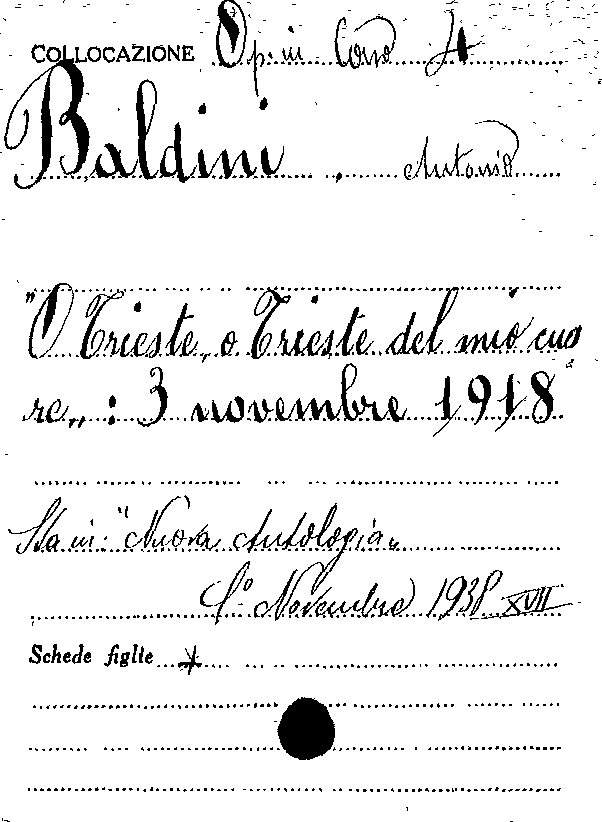 COLLOCAZIONE Op. in Corso 4
Baldini, Antonio
"O Trieste, o Trieste del mio cuo
re„: 3 novembre 1918
Sta in: "Nuova Antologia„
1.° Novembre 1938 XVII
Schede figlie